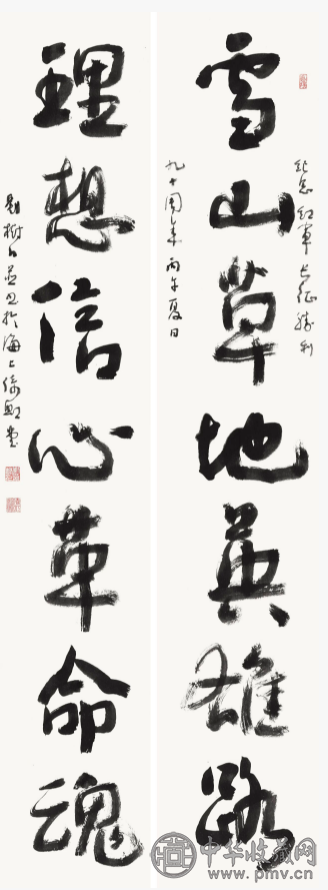 纪念红军长征胜利
雪山草地英雄路
九十周年丙午夏日
理想信心革命魂
树人并书于海上堂
中华收藏网
www.pmv.cn